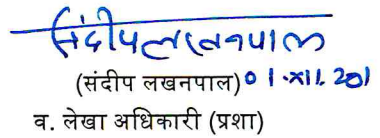 संदीप लखनपाल
(संदीप लखनपाल) 01.XII.201
व. लेखा अधिकारी (प्रशा)